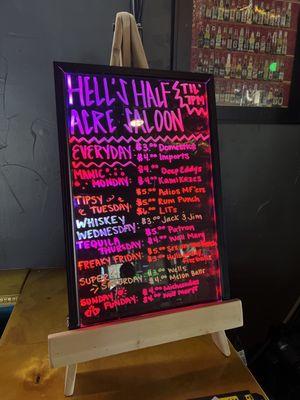 HELL'S HALF
ACRE SALOON
'TIL
7PM
EVERYDAY: $3.00 Domestics
$4.00 Imports
MANIC MONDAY: $4.00 Deep Eddys
$4.00 Kamikazes
TIPSY TUESDAY: $5.00 Adios MF'ers
$5.00 Rum Punch
$6.00 LIT's
WHISKEY WEDNESDAY: $3.00 Jack & Jim
TEQUILA THURSDAY: $5.00 Patron
$4.00 Well Marg
FREAKY FRIDAY: $5.00
$3.00
SUPER SATURDAY: $3.00 Wells
$4.00
SUNDAY FUNDAY: $4.00 Michelados
$4.00 Well Marg